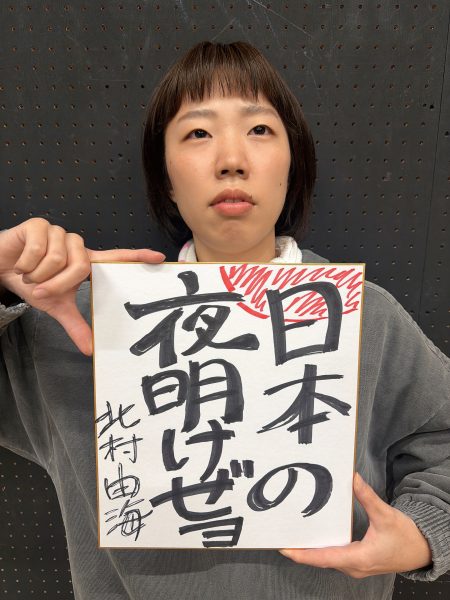 日本の
夜明けぜヨ
北村由海